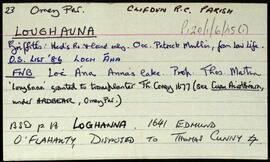 23 Omey Par. CLIFDEN R.C. PARISH
LOUGHAUNA
Griffiths: Hed's Rs. & Land only. Occ. Patrick Mullin, for low life.
O.S. LIST '86 LOCH ÁNA
FNB Loc Ána Anna's lake. Prop. Thos Martin
'Loughana granted to transplanter Thos Coney 1677 (see
under ARDBEAR, Omey Par.)
BSD p 18 LOGHANNA. 1641 EDMUND
O'FLAHARTY DISPOSED TO THOMAS CUNNY